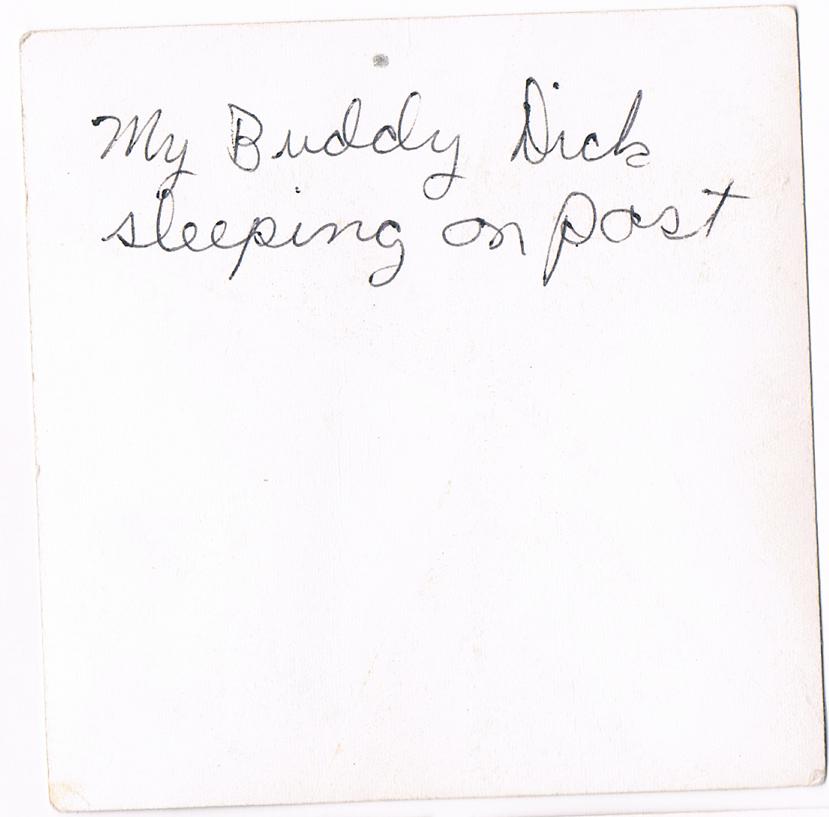 My Buddy Dick
sleeping on post